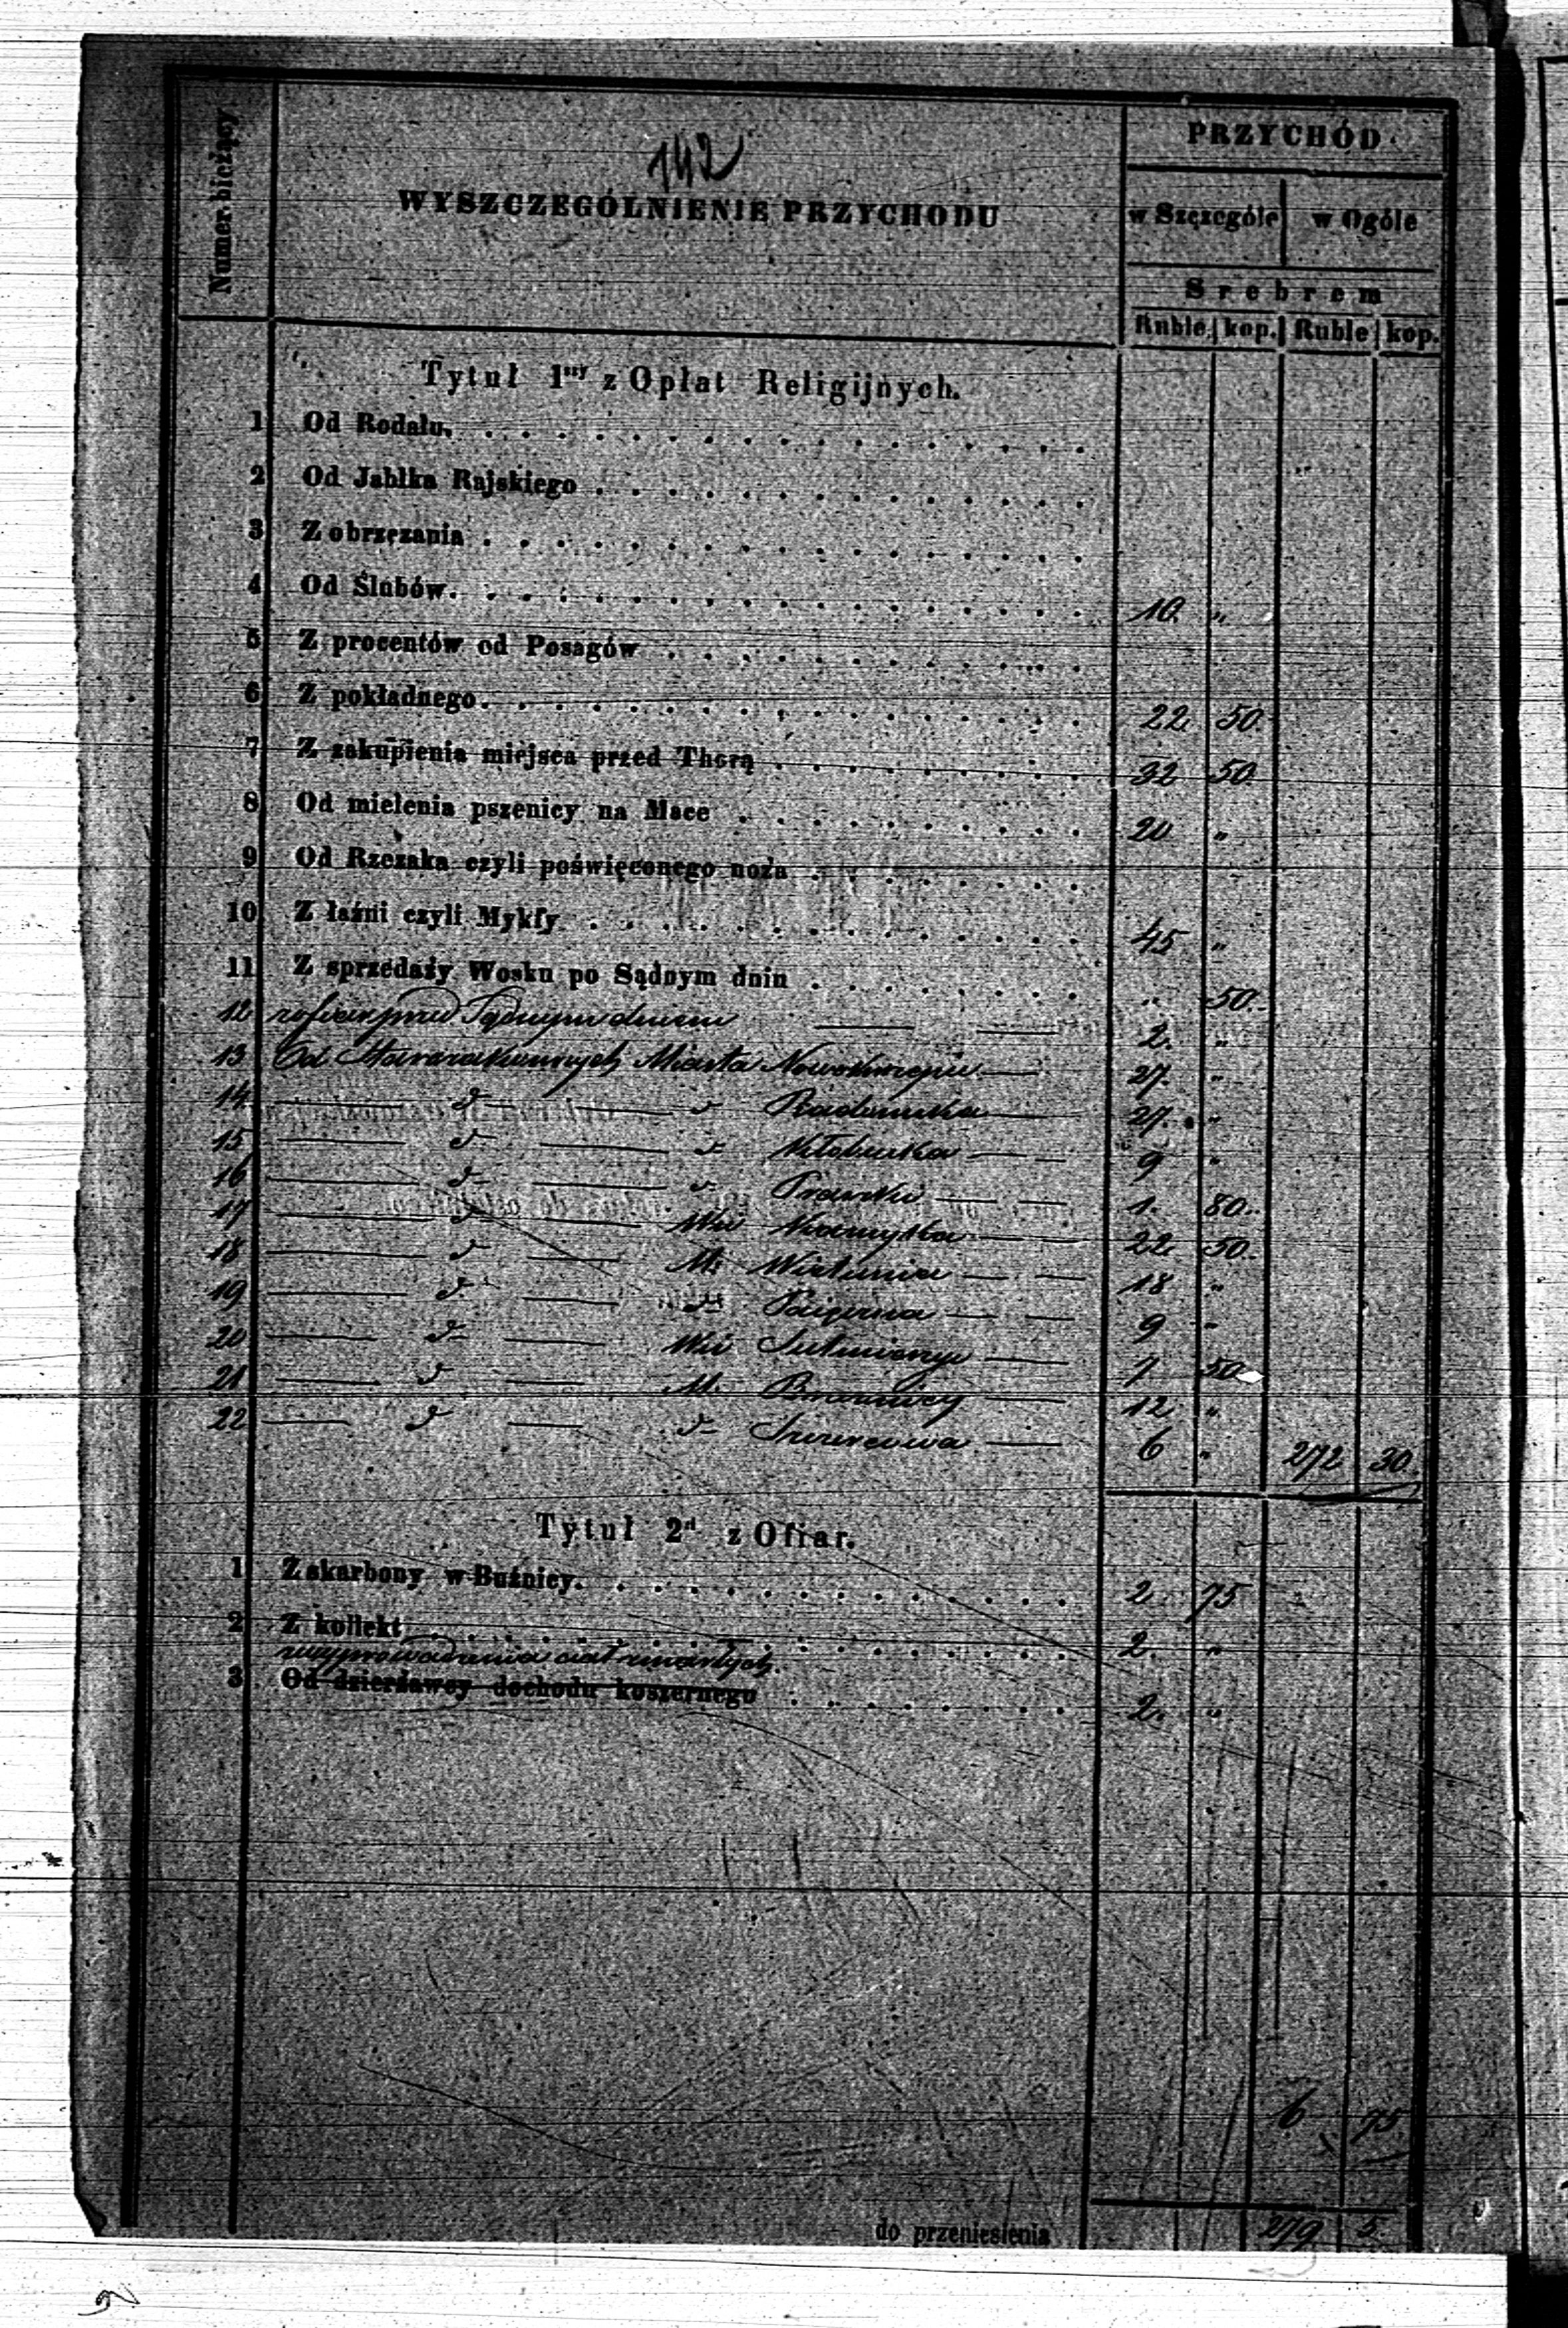 142
Numer bieżący
WYSZCZEGÓLNIENIE PRZYCHODU
PRZYCHÓD
w Szczególe w Ogóle
Srebrem
Ruble kop. Ruble kop.
Tytuł 1szy z Opłat Religijnych.
1 Od Rodału
2 Od Jabłka Rajskiego
3 Z obrzezania
4 Od Ślubów 10. „
5 Z procentów od Posagów
6 Z pokładnego 22 50.
7 Z zakupienia miejsca przed Thorą 32 50
8 Od mielenia pszenicy na Mace 20 „
9 Od Rzezaka czyli poświęconego noża
10 Z łaźni czyli Mykfy 45 „
11 Z sprzedaży Wosku po Sądnym dniu „ 50.
12 z ofiar przed Sądnym dniem 2. „
13 Od Starozakonnych Miasta 27. „
14 d d Radomska 27. „
15 d d Kłobucka 9 „
16 d d Praszki 1. 80.
17 d Wsi 22 50.
18 d M. Wielunia 18 „
19 d d Pajęczna 9 „
20 d Wsi 7 50
21 d M. Brzeźnicy 12 „
22 d d Szczercowa 6 „ 272 30.
Tytuł 2gi z Ofiar.
1 Z skarbony w Buźnicy 2. 75
2 Z kollekt 2. „
z wyprowadzenia ciał zmarłych
3 Od dzierżawcy dochodu koszernego 2. „
6 75
do przeniesienia 279 5